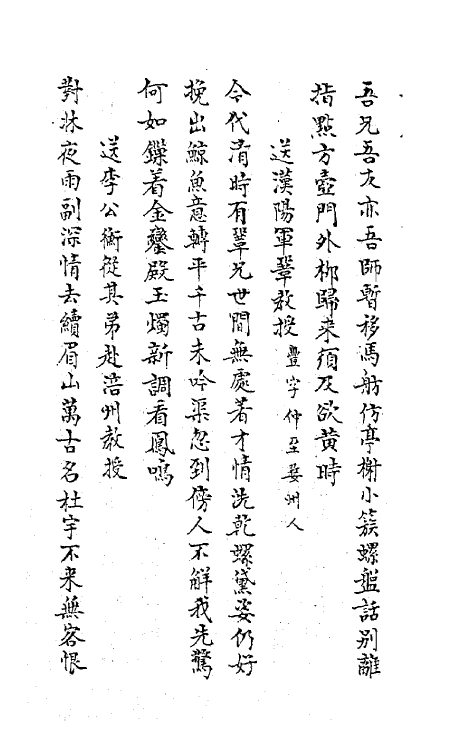 吾兄吾友亦吾師暫移馮舫仿亭榭小簇螺盤話別離
指點方壺門外柳歸來須及欲黄時
送漢陽軍鞏教授豐字仲至婺州人
今代清時有鞏兄世間無處著才情洗乾螺黛姿仍好
挽出鯨魚意轉平千古未吟渠忽到傍人不解我先驚
何如鏁着金鑾殿玉燭新調看鳳鳴
送李公衛從其弟赴涪州教授
對牀夜雨副深情去續眉山萬古名杜宇不來無客恨